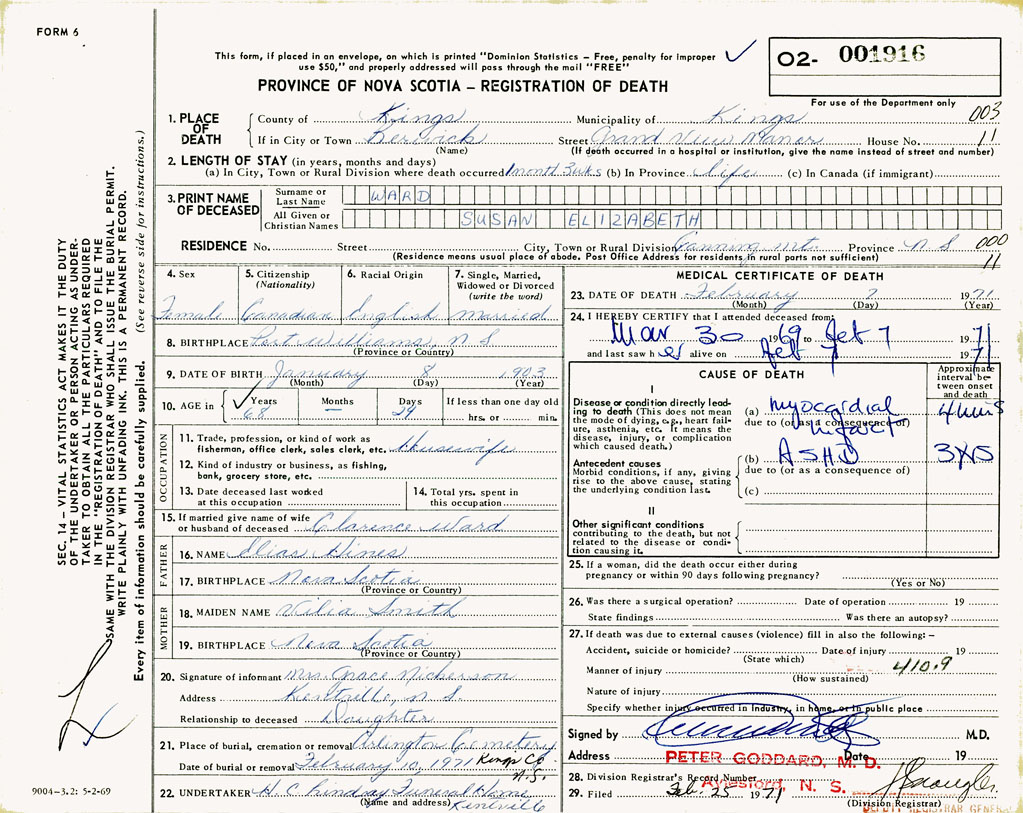 FORM 6
This form, if placed in an envelope, on which is printed "Dominion Statistics – Free, penalty for Improper
use $50," and properly addressed will pass through the mail "FREE"
O2- 001916
PROVINCE OF NOVA SCOTIA – REGISTRATION OF DEATH
For use of the Department only
003
1. PLACE OF DEATH County of Kings Municipality of Kings
If in City or Town Berwick Street Grand View Manor House No. 11
(Name) (If death occurred in a hospital or institution, give the name instead of street and number)
2. LENGTH OF STAY (in years, months and days)
(a) In City, Town or Rural Division where death occurred 1 month 3 wks (b) In Province life (c) In Canada (if immigrant)
3. PRINT NAME OF DECEASED Surname or Last Name WARD
All Given or Christian Names SUSAN ELIZABETH
RESIDENCE No. Street City, Town or Rural Division Canning Mt. Province N S 000
(Residence means usual place of abode. Post Office Address for residents in rural parts not sufficient) 11
4. Sex 5. Citizenship (Nationality) 6. Racial Origin 7. Single, Married, Widowed or Divorced (write the word)
Female Canadian English Married
8. BIRTHPLACE Port Williams, N S
(Province or Country)
9. DATE OF BIRTH January 8 1903
(Month) (Day) (Year)
10. AGE in Years Months Days If less than one day old
68 – 29 hrs. or min.
OCCUPATION
11. Trade, profession, or kind of work as
fisherman, office clerk, sales clerk, etc. Housewife
12. Kind of industry or business, as fishing,
bank, grocery store, etc.
13. Date deceased last worked
at this occupation
14. Total yrs. spent in
this occupation
15. If married give name of wife
or husband of deceased Clarence Ward
FATHER
16. NAME Elias Hines
17. BIRTHPLACE Nova Scotia
(Province or Country)
MOTHER
18. MAIDEN NAME Vilia Smith
19. BIRTHPLACE Nova Scotia
(Province or Country)
20. Signature of informant Mrs. Grace Nickerson
Address Kentville, N. S.
Relationship to deceased Daughter
21. Place of burial, cremation or removal Arlington Cemetery
Date of burial or removal February 10, 1971 Kings Co N.S.
22. UNDERTAKER H. C. Lindsay Funeral Home
(Name and address) Kentville
MEDICAL CERTIFICATE OF DEATH
23. DATE OF DEATH February 7 1971
(Month) (Day) (Year)
24. I HEREBY CERTIFY that I attended deceased from:
Mar 30 1969 to Feb 7 1971
and last saw her alive on Feb 7 1971
CAUSE OF DEATH
Approximate interval between onset and death
I
Disease or condition directly leading to death (This does not mean the mode of dying, e.g., heart failure, asthenia, etc. It means the disease, injury, or complication which caused death.)
(a) Myocardial Infarct
due to (or as a consequence of)
Antecedent causes
Morbid conditions, if any, giving rise to the above cause, stating the underlying condition last.
(b) ASHD
due to (or as a consequence of)
(c)
II
Other significant conditions
contributing to the death, but not
related to the disease or condition causing it.
25. If a woman, did the death occur either during
pregnancy or within 90 days following pregnancy?
(Yes or No)
26. Was there a surgical operation? Date of operation 19
State findings Was there an autopsy?
27. If death was due to external causes (violence) fill in also the following: –
Accident, suicide or homicide? Date of injury 19
(State which)
Manner of injury 410.9
(How sustained)
Nature of injury
Specify whether injury occurred in industry, in home, or in public place
Signed by M.D.
Address Date 19
PETER GODDARD, M. D.
Aylesford, N. S.
28. Division Registrar's Record Number
29. Filed Feb 25 1971
(Division Registrar)
DEPUTY REGISTRAR GENERAL
SEC. 14 – VITAL STATISTICS ACT MAKES IT THE DUTY
OF THE UNDERTAKER OR PERSON ACTING AS UNDER-
TAKER TO OBTAIN ALL THE PARTICULARS REQUIRED
IN THE "REGISTRATION OF DEATH" AND TO FILE THE
SAME WITH THE DIVISION REGISTRAR WHO SHALL ISSUE THE BURIAL PERMIT.
WRITE PLAINLY WITH UNFADING INK. THIS IS A PERMANENT RECORD.
Every item of information should be carefully supplied. (See reverse side for instructions.)
9004–3.2: 5-2-69